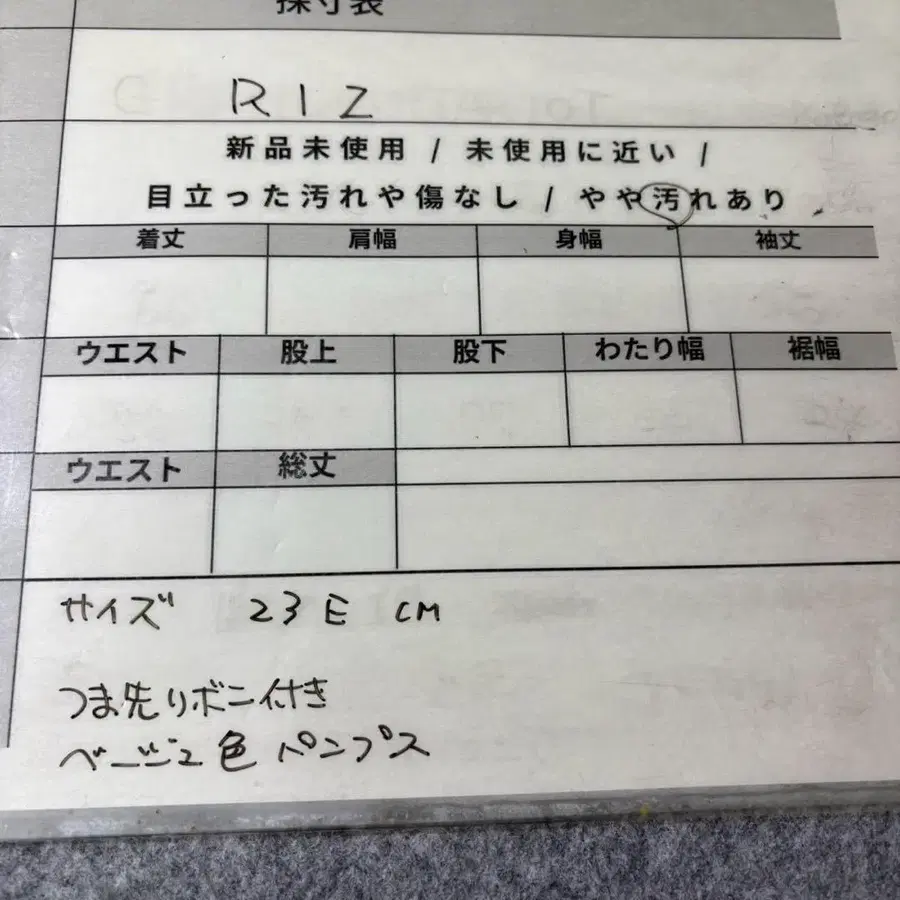 採寸表
RIZ
新品未使用 / 未使用に近い /
目立った汚れや傷なし / やや汚れあり
着丈 肩幅 身幅 袖丈
ウエスト 股上 股下 わたり幅 裾幅
ウエスト 総丈
サイズ 23 E CM
つま先リボン付き
ベージュ色 パンプス